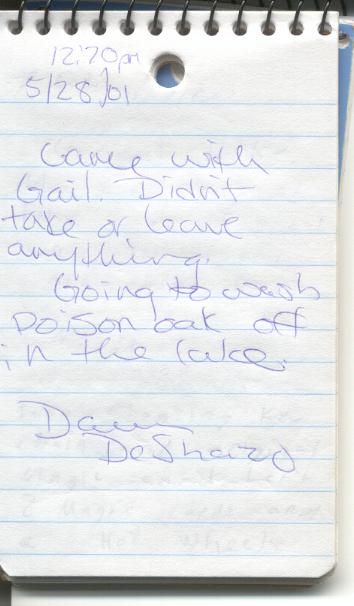 12:20pm
5/28/01
Came with
Gail. Didn't
take or leave
anything.
Going to wash
poison oak off
in the lake.
Dawn
DeShazo
Hot Wheels